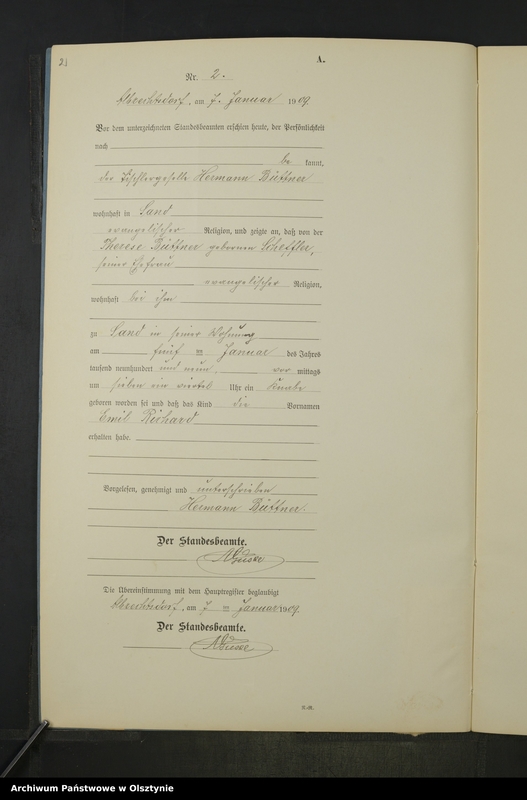 2.
A.
Nr. 2.
Albrechtsdorf, am 7. Januar 1909.
Vor dem unterzeichneten Standesbeamten erschien heute, der Persönlichkeit
nach
be kannt,
der Tischlergeselle Hermann Büttner
wohnhaft in Sand
evangelischer Religion, und zeigte an, daß von der
Therese Büttner geborenen Scheffler,
seiner Ehefrau
evangelischer Religion,
wohnhaft bei ihm
zu Sand in seiner Wohnung
am fünf ten Januar des Jahres
tausend neunhundert und neun, vor mittags
um sieben ein viertel Uhr ein Knabe
geboren worden sei und daß das Kind die Vornamen
Emil Richard
erhalten habe.
Vorgelesen, genehmigt und unterschrieben
Hermann Büttner.
Der Standesbeamte.
Die Übereinstimmung mit dem Hauptregister beglaubigt
Albrechtsdorf, am 7 ten Januar 1909.
Der Standesbeamte.
Archiwum Państwowe w Olsztynie